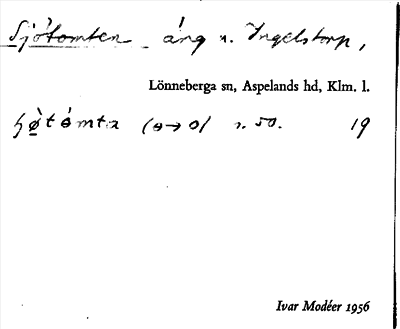 Sjötomten äng n. Ingelstorp,
Lönneberga sn, Aspelands hd, Klm. l.
19
Ivar Modéer 1956